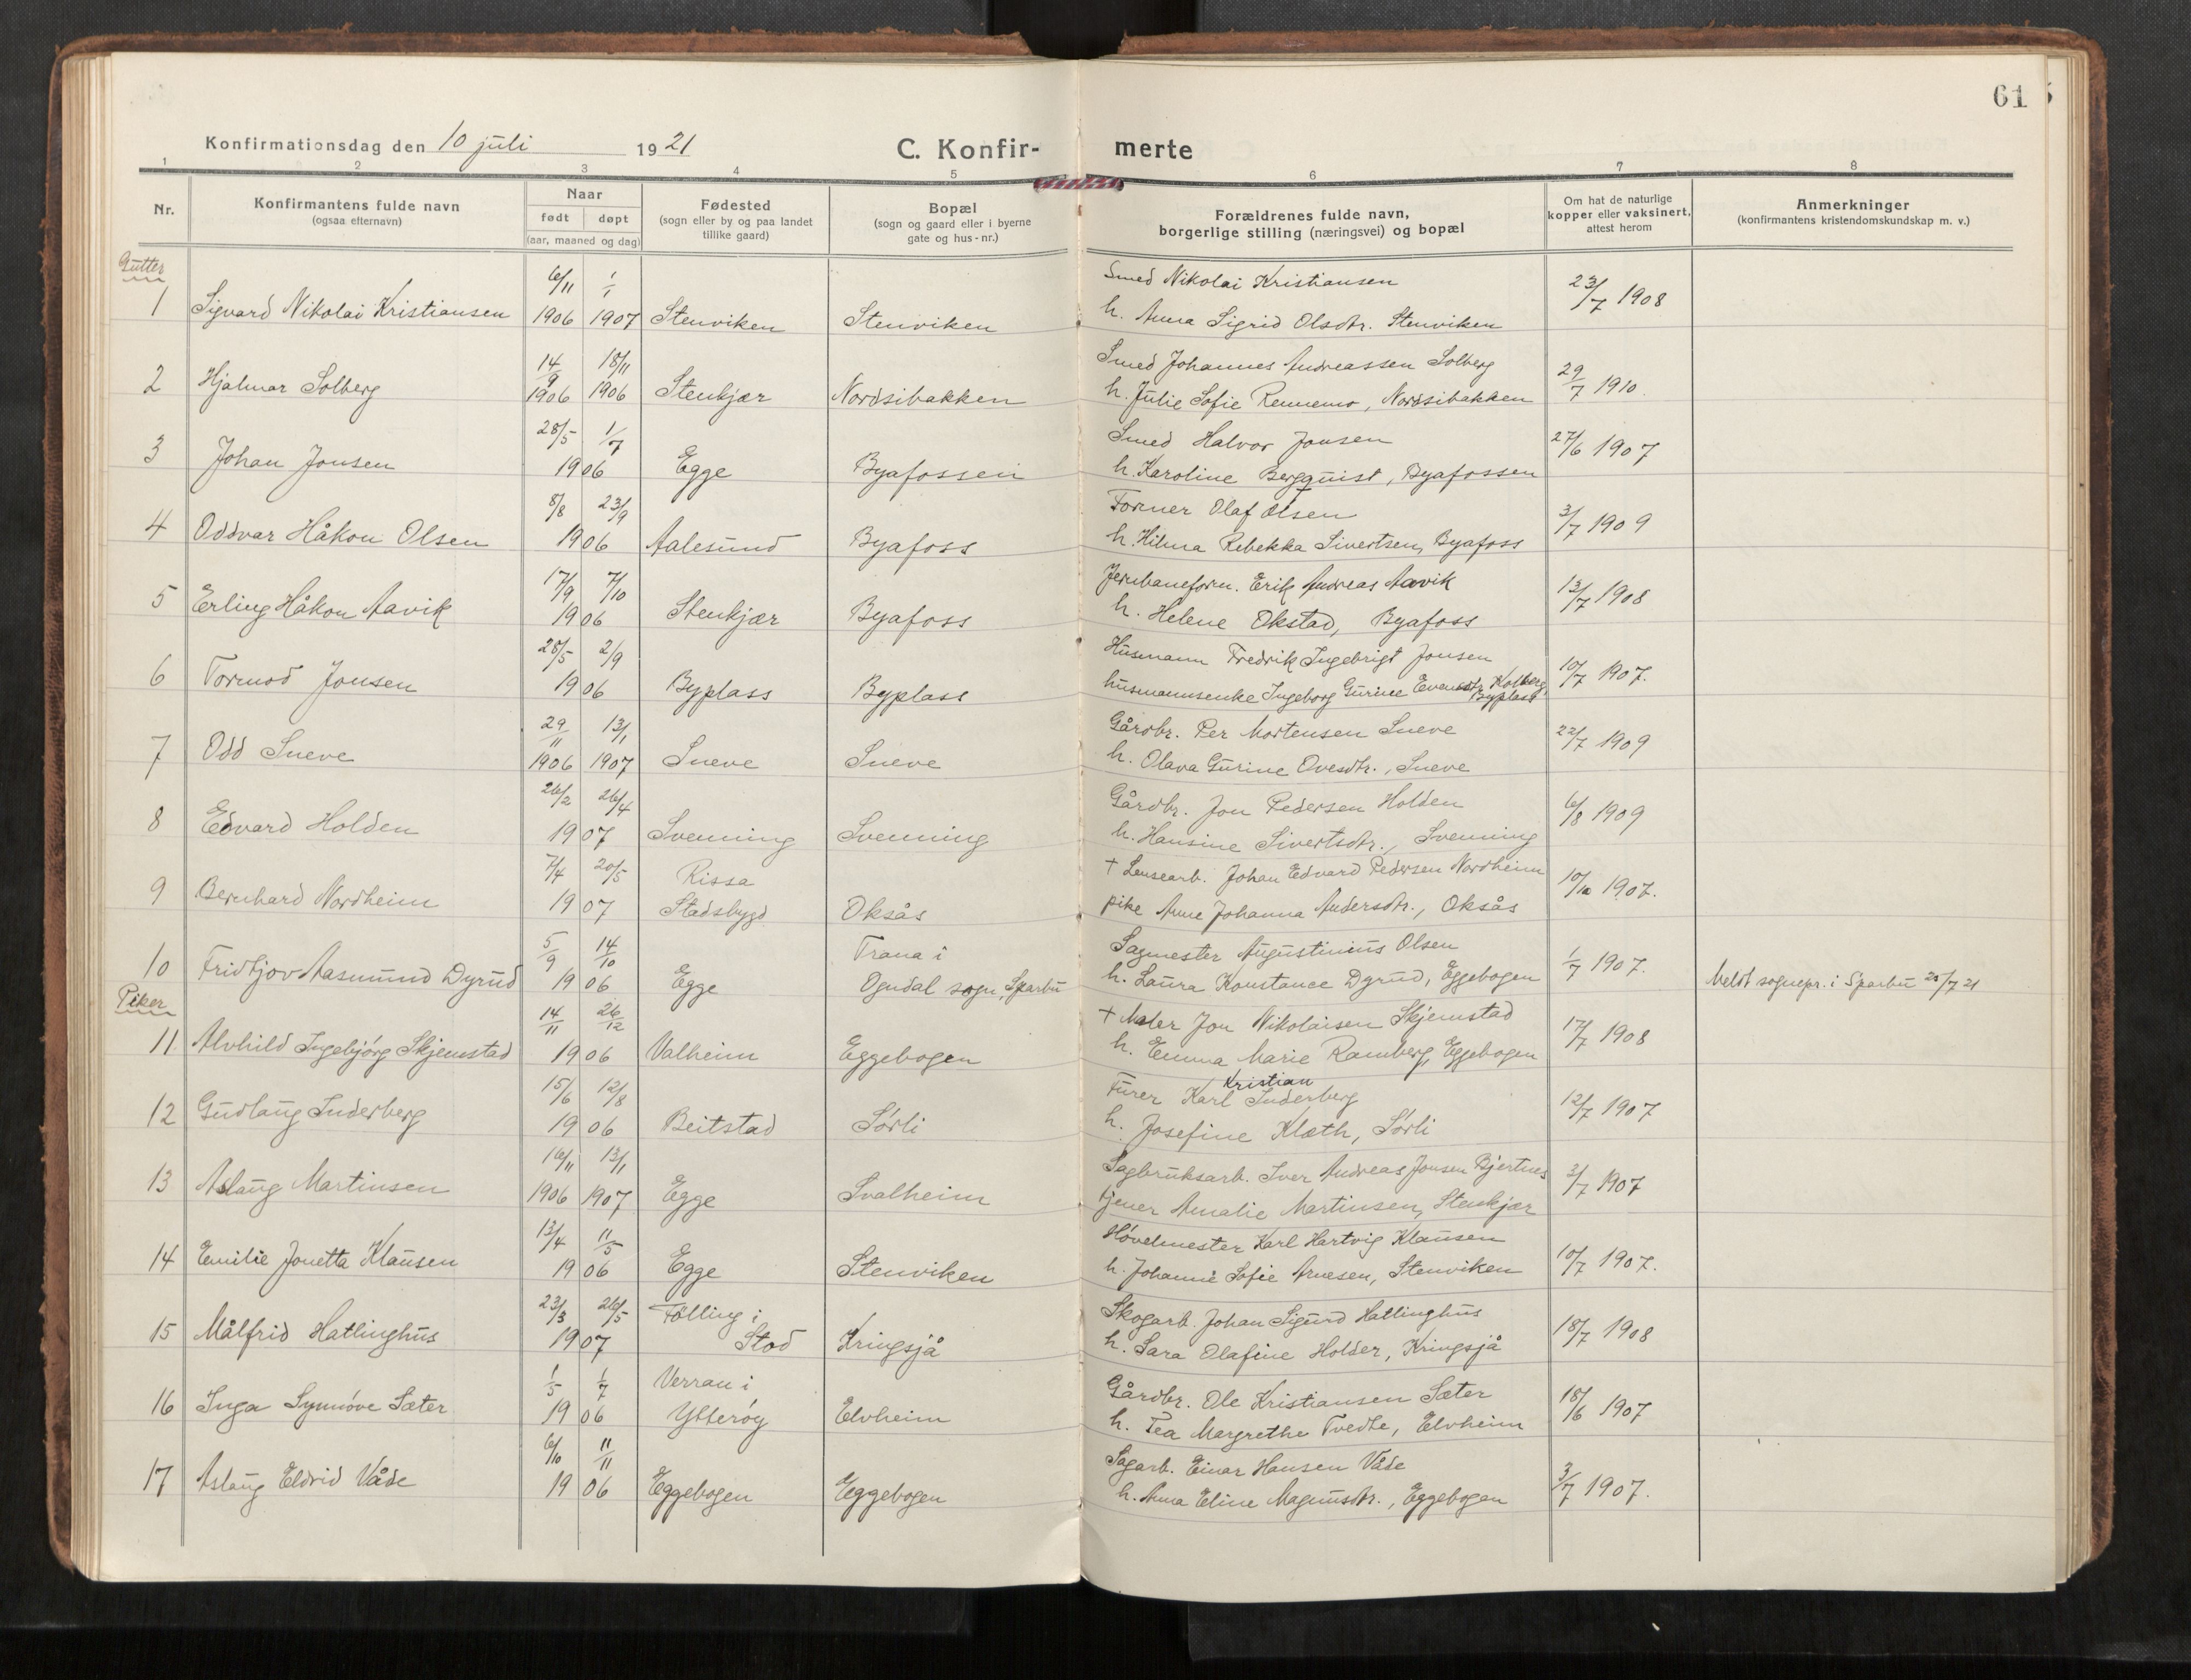 61
Konfirmationsdag den 10 juli 1921
C. Konfir- merte
1 2 3 4 5 6 7 8
Nr.
Konfirmantens fulde navn
(ogsaa efternavn)
Naar
født døpt
(aar, maaned og dag)
Fødested
(sogn eller by og paa landet
tillike gaard)
Bopæl
(sogn og gaard eller i byerne
gate og hus-nr.)
Forældrenes fulde navn,
borgerlige stilling (næringsvei) og bopæl
Om hat de naturlige
kopper eller vaksinert,
attest herom
Anmerkninger
(konfirmantens kristendomskundskap m. v.)
Gutter
6/11 1/1 Smed Nikolai Kristiansen
1 Sigvard Nikolai Kristiansen 1906 1907 Stenviken Stenviken h. Anna Sigrid Olsdtr. Stenviken 23/7 1908
14/9 18/11 Smed Johannes Andreassen Solberg
2 Hjalmar Solberg 1906 1906 Stenkjær Nordsibakken h. Julie Sofie Rennemo, Nordsibakken 29/7 1910.
28/5 1/7 Smed Halvor Jonsen
3 Johan Jonsen 1906 Egge Byafossen h. Karoline Bergquist, Byafossen 27/6 1907
8/8 23/9 Former Olaf Olsen
4 Oddvar Håkon Olsen 1906 Aalesund Byafoss h. Hilma Rebekka Sivertsen, Byafoss 3/7 1909
17/9 7/10 Jernbaneform. Erik Andreas Aavik
5 Erling Håkon Aavik 1906 Stenkjær Byafoss h. Helene Okstad, Byafoss 13/7 1908
28/5 2/9 Husmann Fredrik Ingebrigt Jonsen
6 Tormod Jonsen 1906 Byplass Byplass husmannsenke Ingeborg Gurine Evensdtr. Kolberg, Byplass 10/7 1907.
29/11 13/1 Gårdbr. Per Mortensen Sneve
7 Odd Sneve 1906 1907 Sneve Sneve h. Olava Gurine Ovesdtr., Sneve 22/7 1909
26/2 26/4 Gårdbr. Jon Pedersen Holden
8 Edvard Holden 1907 Svenning Svenning h. Hansine Sivertsdtr., Svenning 6/8 1909
7/4 20/5 Rissa + Lensearb. Johan Edvard Pedersen Nordheim
9 Bernhard Nordheim 1907 Stadsbygd Oksås pike Anne Johanna Andersdtr., Oksås 10/10 1907.
5/9 14/10 Trana i Sagmester Augustinius Olsen
10 Fridtjov Aasmund Dyrud 1906 Egge Ogndal sogn, Sparbu h. Laura Konstance Dyrud, Eggebogen 1/7 1907. Meldt sognepr. i Sparbu 25/7 21
Piker
14/11 26/12 + Maler Jon Nikolaisen Skjemstad
11. Alvhild Ingebjörg Skjemstad 1906 Valheim Eggebogen h. Emma Marie Ramberg, Eggebogen 17/7 1908
15/6 12/8 Furer Karl Kristian Inderberg
12 Gudlaug Inderberg 1906 Beitstad Sörli h. Josefine Klæth, Sörli 12/7 1907
16/11 13/1 Sagbruksarb. Iver Andreas Jonsen Bjertnes
13 Aslaug Martinsen 1906 1907 Egge Svalheim tjener Amalie Martinsen, Stenkjær 3/7 1907
13/4 11/5 Hövelmester Karl Hartvig Klausen
14 Emilie Jonetta Klausen 1906 Egge Stenviken h. Johanne Sofie Arnesen, Stenviken 10/7 1907.
23/3 26/5 Fölling i Skogarb. Johan Sigurd Hatlinghus
15 Målfrid Hatlinghus 1907 Stod Kringsjå h. Sara Olafine Holder, Kringsjå 18/7 1908
1/5 1/7 Verran i Gårdbr. Ole Kristiansen Sæter
16 Inga Synnöve Sæter 1906 Ytteröy Elvheim h. Tea Margrethe Tvedte, Elvheim 18/6 1907
6/10 11/11 Sagarb. Einar Hansen Våde
17 Aslaug Eldrid Våde 1906 Eggebogen Eggebogen h. Anna Eline Magnusdtr., Eggebogen 3/7 1907.